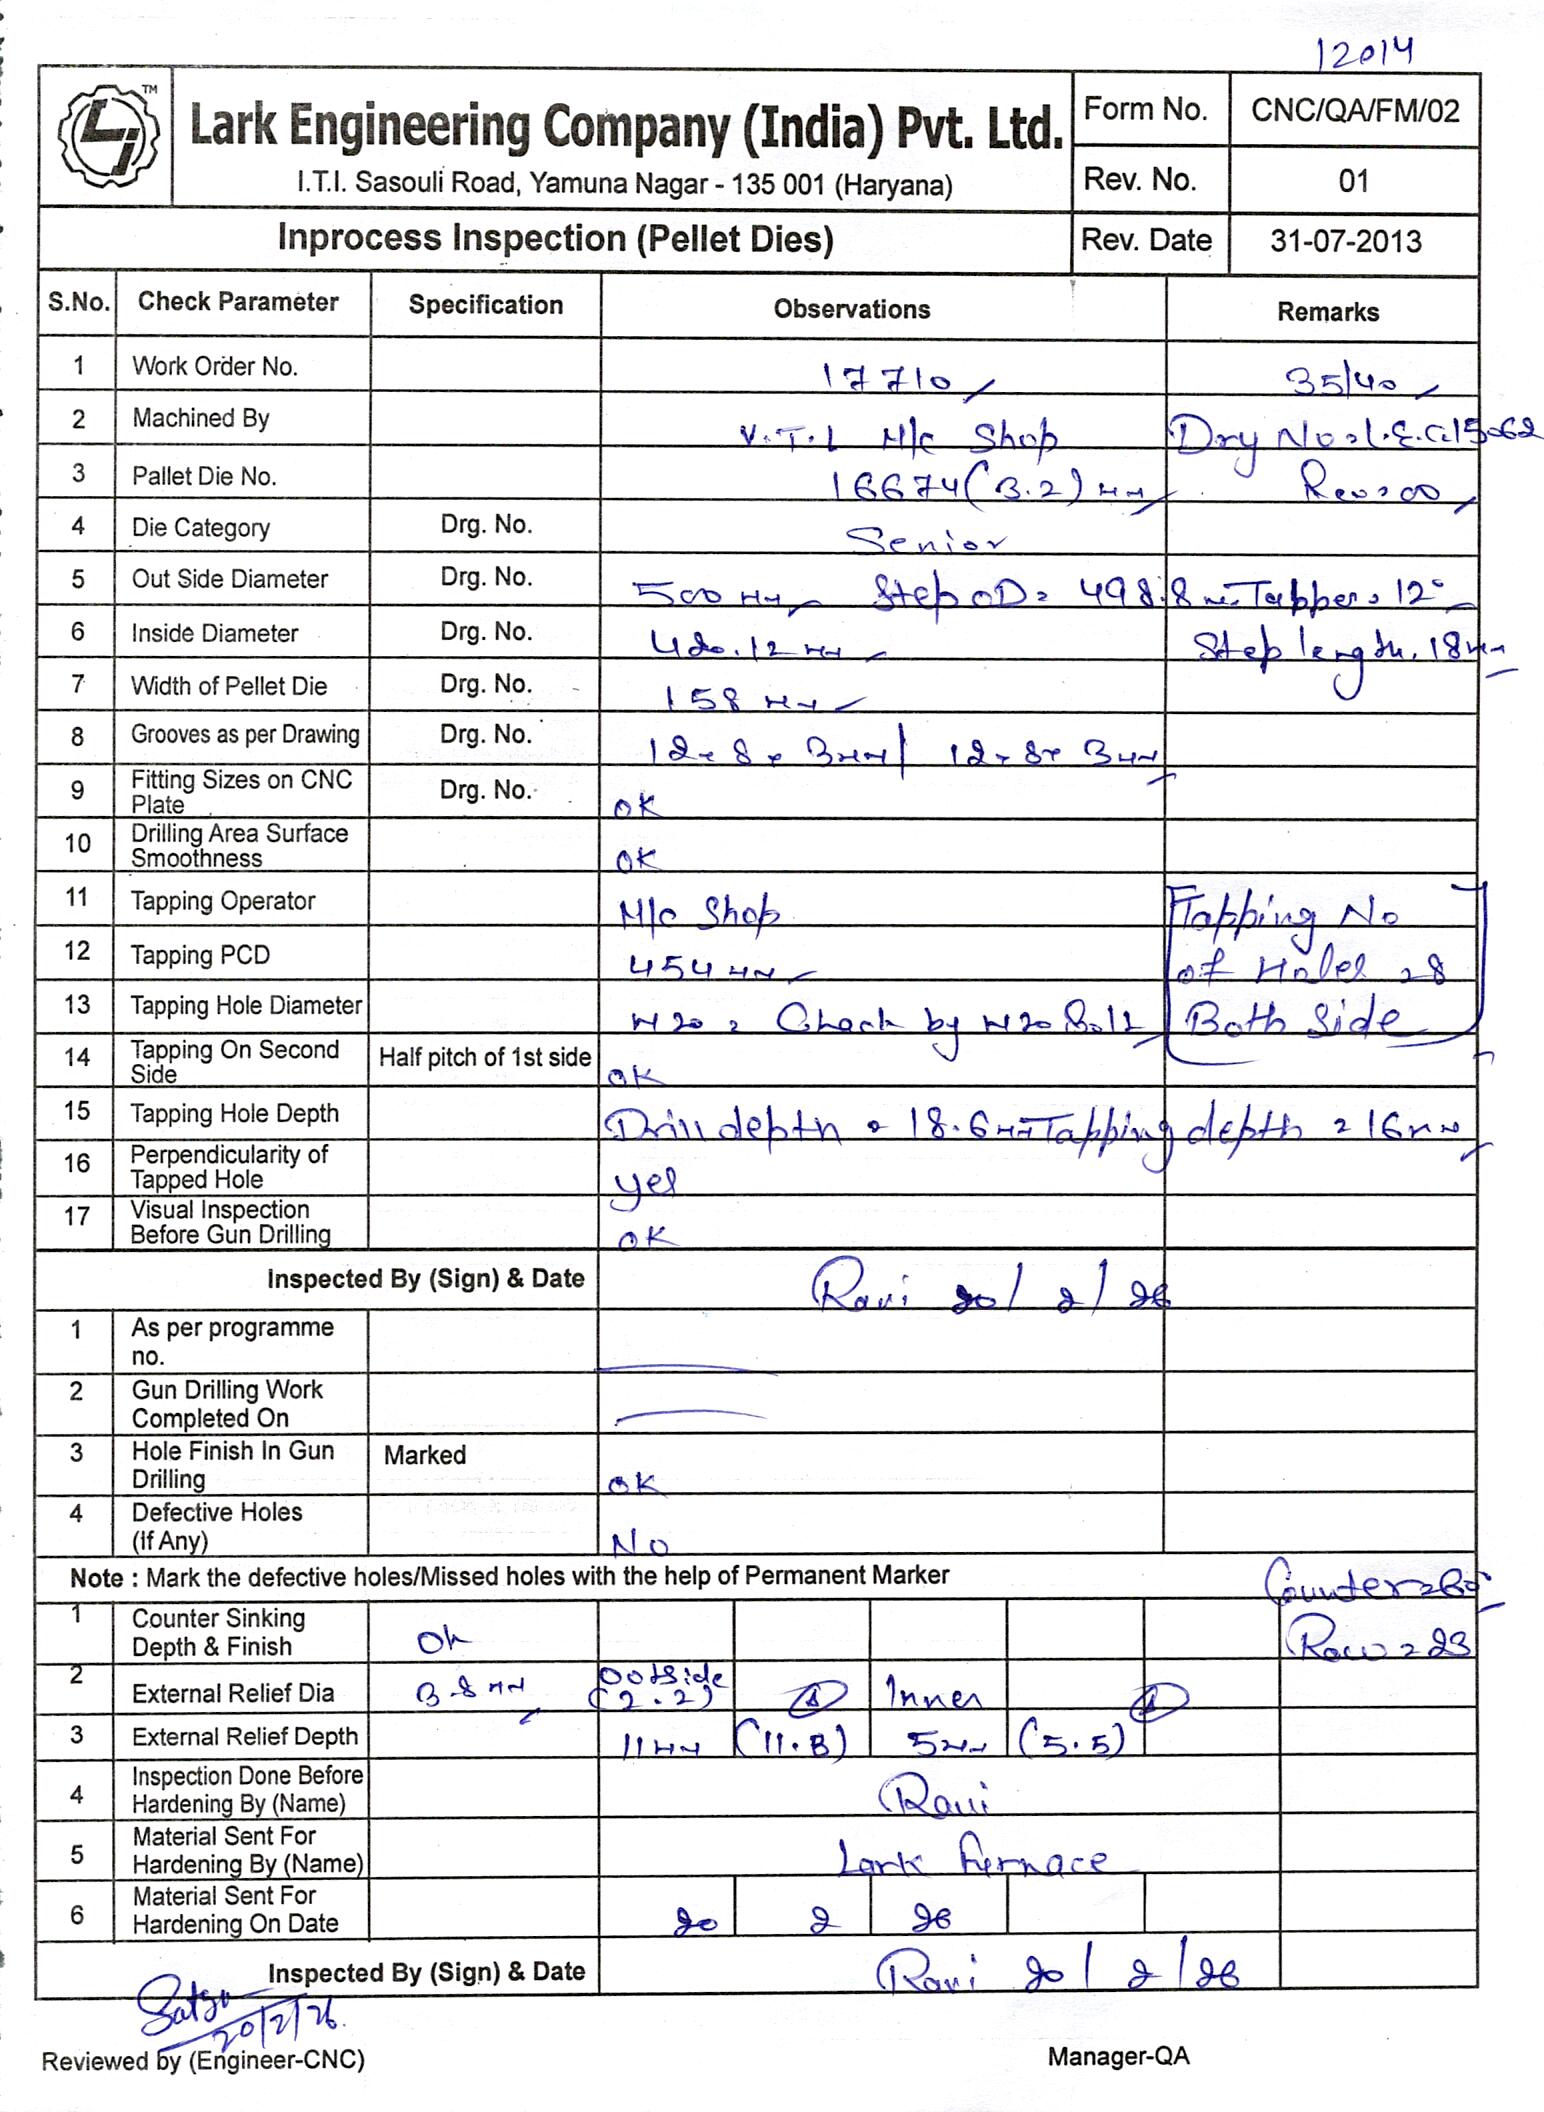 12014
TM
Lark Engineering Company (India) Pvt. Ltd.
I.T.I. Sasouli Road, Yamuna Nagar - 135 001 (Haryana)
Form No. CNC/QA/FM/02
Rev. No. 01
Inprocess Inspection (Pellet Dies) Rev. Date 31-07-2013
S.No. Check Parameter Specification Observations Remarks
1 Work Order No. 17710 35/40
2 Machined By V.T.L M/c Shop Drg No = L.E.C.15062
3 Pallet Die No. 16674 (3.2) mm Rev = 00
4 Die Category Drg. No. Senior
5 Out Side Diameter Drg. No. 500 mm Step OD = 498.8 mm Tapper = 12°
6 Inside Diameter Drg. No. 420.12 mm Step length. 18mm
7 Width of Pellet Die Drg. No. 158 mm
8 Grooves as per Drawing Drg. No. 12 x 8 x 3mm / 12 x 8 x 3mm
9 Fitting Sizes on CNC Plate Drg. No. OK
10 Drilling Area Surface Smoothness OK
11 Tapping Operator M/c Shop Tapping No
12 Tapping PCD 454 mm of Holes = 8
13 Tapping Hole Diameter M20 = Check by M20 Bolt Both Side
14 Tapping On Second Side Half pitch of 1st side OK
15 Tapping Hole Depth Drill depth = 18.6mm Tapping depth = 16mm
16 Perpendicularity of Tapped Hole yes
17 Visual Inspection Before Gun Drilling OK
Inspected By (Sign) & Date Ravi 20/2/26
1 As per programme no.
2 Gun Drilling Work Completed On
3 Hole Finish In Gun Drilling Marked OK
4 Defective Holes (If Any) No
Note : Mark the defective holes/Missed holes with the help of Permanent Marker Counter = 60°
1 Counter Sinking Depth & Finish Ok Row = 23
2 External Relief Dia 3.8 mm Outside (2.2) Inner
3 External Relief Depth 11mm (11.8) 5mm (5.5)
4 Inspection Done Before Hardening By (Name) Ravi
5 Material Sent For Hardening By (Name) Lark Furnace
6 Material Sent For Hardening On Date 20 2 26
Inspected By (Sign) & Date Ravi 20/2/26
20/2/26.
Reviewed by (Engineer-CNC) Manager-QA